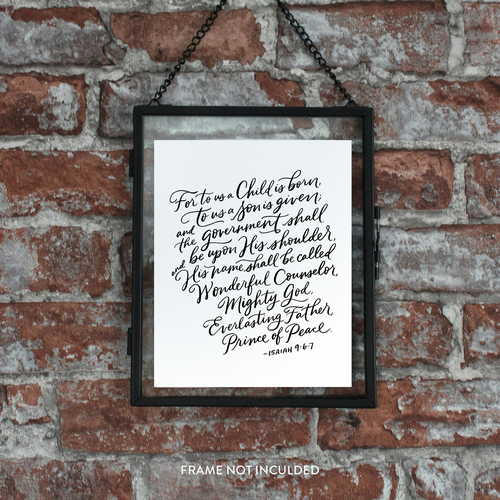 For to us a Child is born,
to us a Son is given;
and
the government shall
be upon His shoulder,
and
His name shall be called
Wonderful Counselor,
Mighty God,
Everlasting Father,
Prince of Peace.
-ISAIAH 9:6-7
FRAME NOT INCULDED